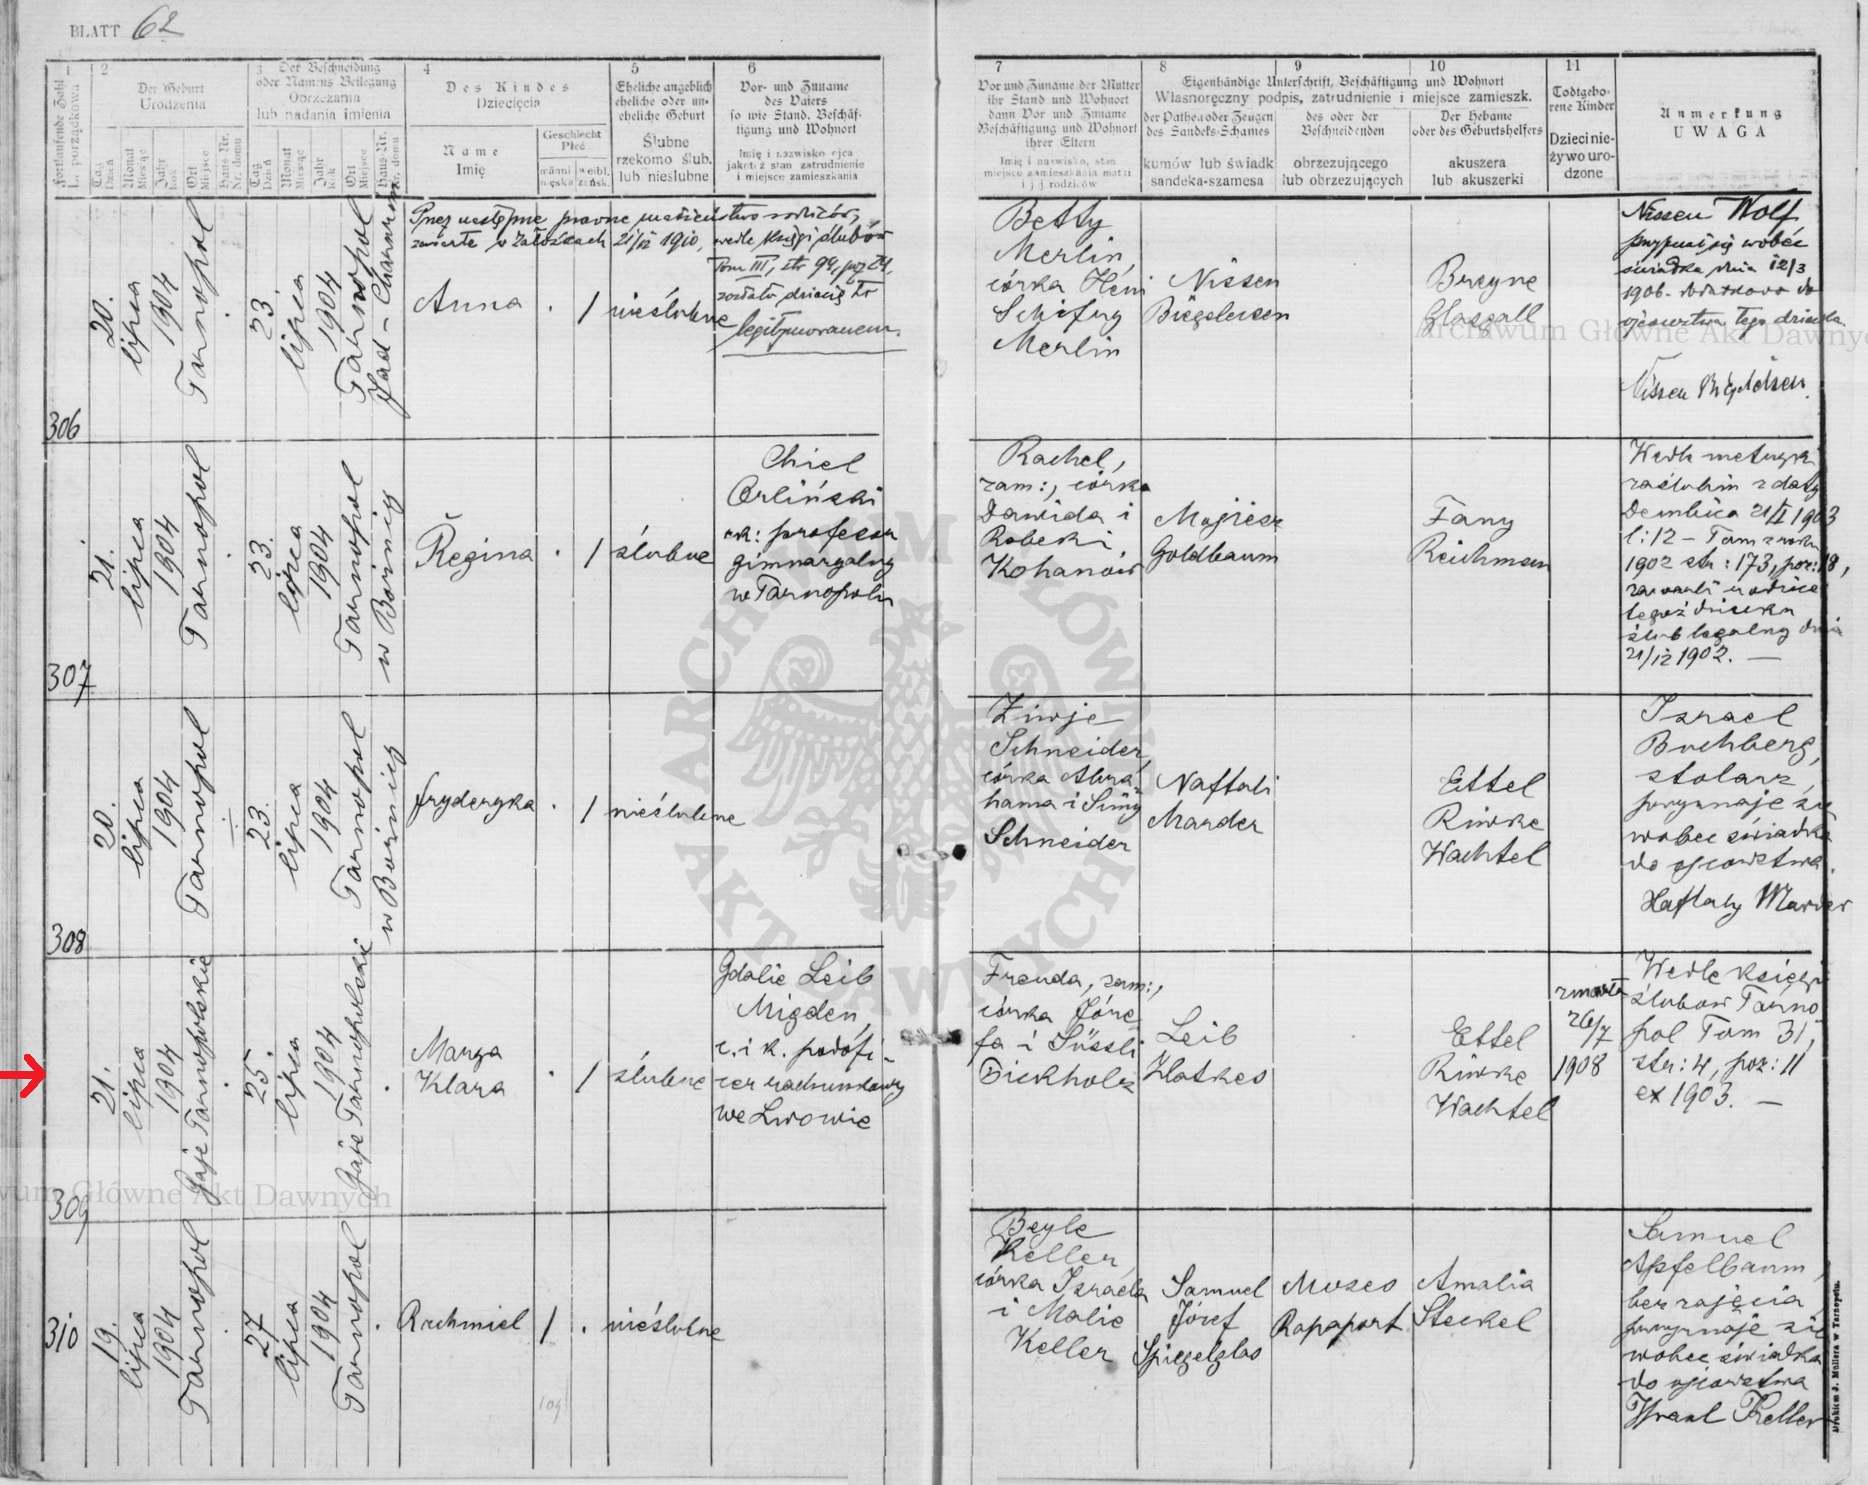 BLATT 62
1
Fortlaufende Zahl
L. porządkowa
2
Der Geburt
Urodzenia
Tag
Dzień
Monat
Miesiąc
Jahr
Rok
Ort
Miejsce
Haus-Nr.
Nr. domu
3
Der Beschneidung
oder Namens Beilegung
Obrzezania
lub nadania imienia
Tag
Dzień
Monat
Miesiąc
Jahr
Rok
Ort
Miejsce
Haus-Nr.
Nr. domu
4
Des Kindes
Dziecięcia
Name
Imię
Geschlecht
Płeć
männl
męska
weibl.
żeńsk.
5
Eheliche angeblich
eheliche oder un-
eheliche Geburt
Ślubne
rzekomo ślub.
lub nieślubne
6
Vor- und Zuname
des Vaters
so wie Stand, Beschäf-
tigung und Wohnort
Imię i nazwisko ojca
jakoteż stan zatrudnienie
i miejsce zamieszkania
7
Vor und Zuname der Mutter
ihr Stand und Wohnort
dann Vor und Zuname
Beschäftigung und Wohnort
ihrer Eltern
Imię i nazwisko, stan
miejsce zamieszkania matki
i jej rodziców
8
9
10
Eigenhändige Unterschrift, Beschäftigung und Wohnort
Własnoręczny podpis, zatrudnienie i miejsce zamieszk.
der Pathen oder Zeugen
des Sandeks-Schames
kumów lub świadk
sandeka-szamesa
des oder der
Beschneidenden
obrzezującego
lub obrzezujących
Der Hebame
oder des Geburtshelfers
akuszera
lub akuszerki
11
Todtgebo-
rene Kinder
Dzieci nie-
żywo uro-
dzone
Anmerkung
UWAGA
306
20.
lipca
1904
Tarnopol
23.
lipca
1904
Tarnopol
Przez następne prawne małżeństwo rodziców,
zawarte w Załoźcach 21/12 1910, wedle księgi ślubów
Tom III, str 99, poz 29,
zostało dziecię to
legitymowanem.
Anna
. /
nieślubne
Betty
Merlin,
córka Heni
Schifry
Merlin
Nissen
Breyne
Glasgall
Nissen Wolf
przyznaje się wobec
świadka dnia 12/3
1906
ojcowstwa tego dziecka
Nissen
307
21.
lipca
1904
Tarnopol
23.
lipca
1904
Tarnopol
w Bożnicy
Regina
. /
ślubne
Chiel
Orliński
ck: profesor
gimnazyalny
w Tarnopolu
Rachel,
zam:, córka
Dawida i
Rebeki
Kohanów
Mojżesz
Goldbaum
Fany
Reichman
Wedle metryki
zaślubin z daty
Dembica 21/I 1903
l: 12 – Tom z roku
1902 str: 173, poz: 18,
zawarli rodzice
tegoż dziecka
ślub legalny dnia
21/12 1902. —
308
20.
lipca
1904
Tarnopol
23.
lipca
1904
Tarnopol
w Bożnicy
Fryderyka
. /
nieślubne
Ziwje
Schneider,
córka Abra-
hama i Simy
Schneider
Naftali
Marder
Ettel
Riwke
Wachtel
Izrael
Buchberg,
stolarz,
przyznaje się
wobec świadka
do ojcowstwa.
Naftaly Marder
309
21.
lipca
1904
Gaje Tarnopolskie
25.
lipca
1904
Gaje Tarnopolskie
Marya
Klara
. /
ślubne
Gdalie Leib
Migden,
c. i k. podofi-
cer rachunkowy
we Lwowie
Freuda, zam:,
córka Józe-
fa i Süssli
Bickholz
Leib
Zlatkes
Ettel
Riwke
Wachtel
zmarła
26/7
1908
Wedle księgi
ślubów Tarno-
pol Tom 31,
str: 4, poz: 11
ex 1903. —
310
19.
lipca
1904
Tarnopol
27
lipca
1904
Tarnopol
Rachmiel
/ .
nieślubne
Beyle
Keller,
córka Izraela
i Malie
Keller
Samuel
Józef
Spiegelglas
Moses
Rapaport
Amalia
Steckel
Samuel
Apfelbaum,
bez zajęcia
przyznaje się
wobec świadka
do ojcowstwa
Israel Keller
109
Drukiem J. Müllera w Tarnopolu.
ARCHIWUM GŁÓWNE
AKT DAWNYCH
Archiwum Główne Akt Dawnych
wum Główne Akt Dawnych